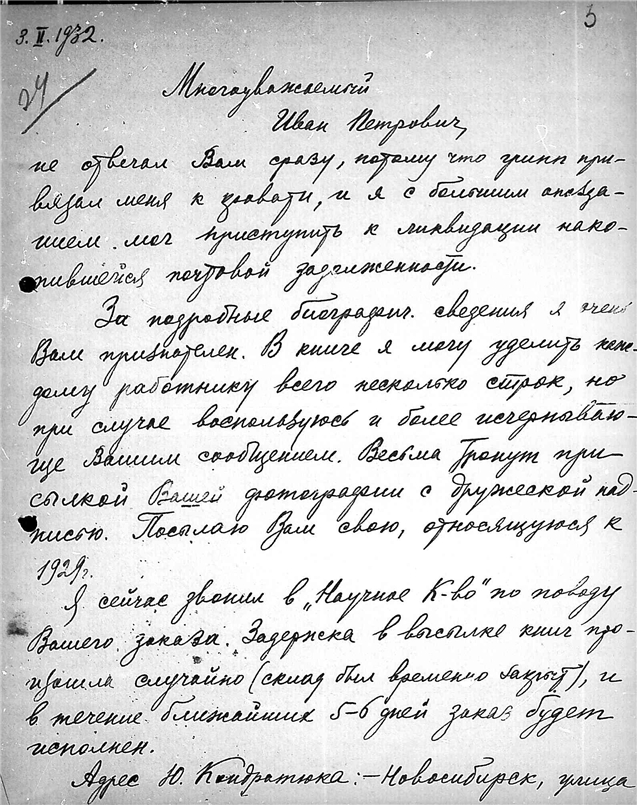 3
3.II.1932.
24
Многоуважаемый
Иван Петрович,
не отвечал Вам сразу, потому что грипп при-
вязал меня к кровати, и я с большим опозда-
нием мог приступить к ликвидации нако-
пившейся почтовой задолженности.
За подробные биографич. сведения я очень
Вам признателен. В книге я могу уделить каж-
дому работнику всего несколько строк, но
при случае воспользуюсь и более исчерпываю-
ще Вашим сообщением. Весьма тронут при-
сылкой Вашей фотографии с дружеской над-
писью. Посылаю Вам свою, относящуюся к
1929г.
Я сейчас звонил в „Научное К-во" по поводу
Вашего заказа. Задержка в высылке книг про-
изошла случайно (склад был временно закрыт), и
в течение ближайших 5-6 дней заказ будет
исполнен.
Адрес Ю. Кондратюка: – Новосибирск, улица